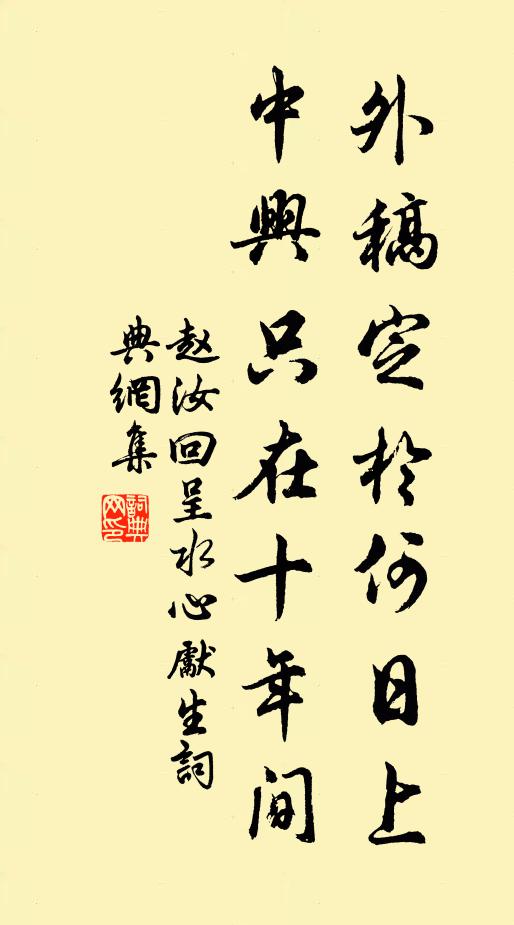 外稿定於何日上
中興只在十年间
赵汝回呈水心獻生詞
典網集
詞典
网印